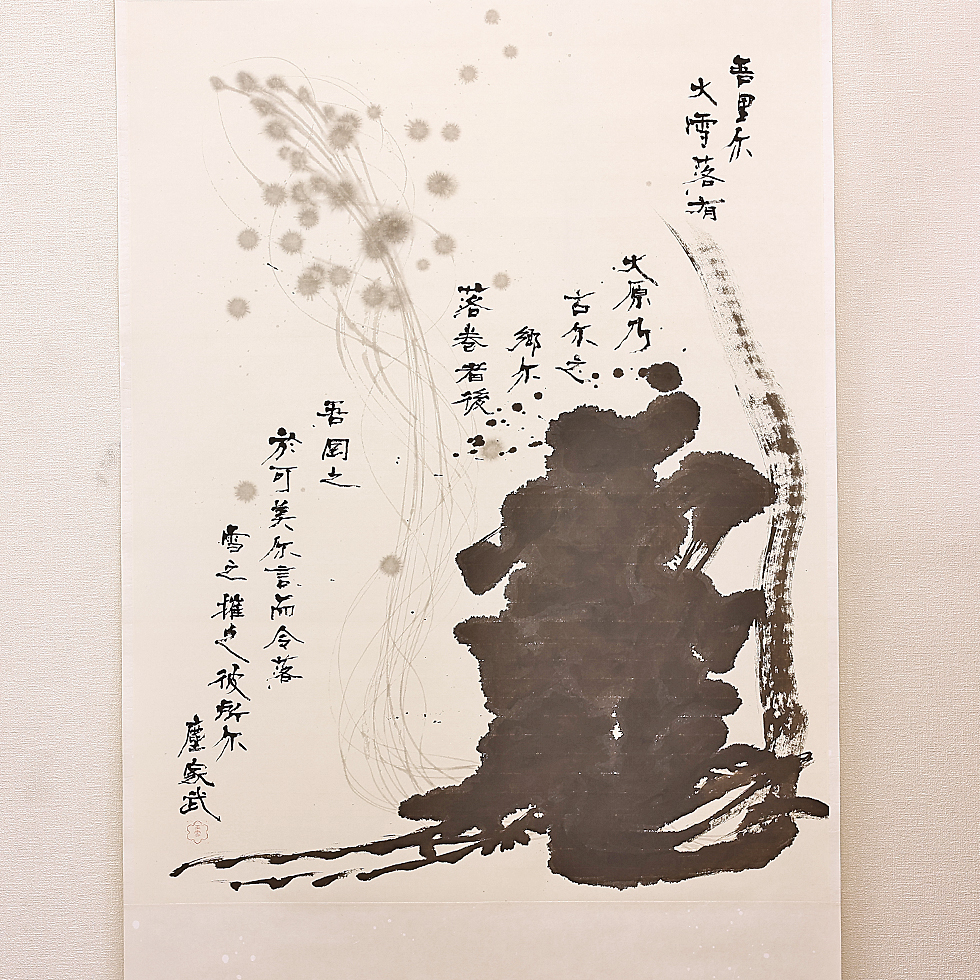 吾里尓
大雪落有
大原乃
古尓之
郷尓
落巻者後
吾岡之
於可美尓言而令落
雪之摧之彼所尓
塵家武